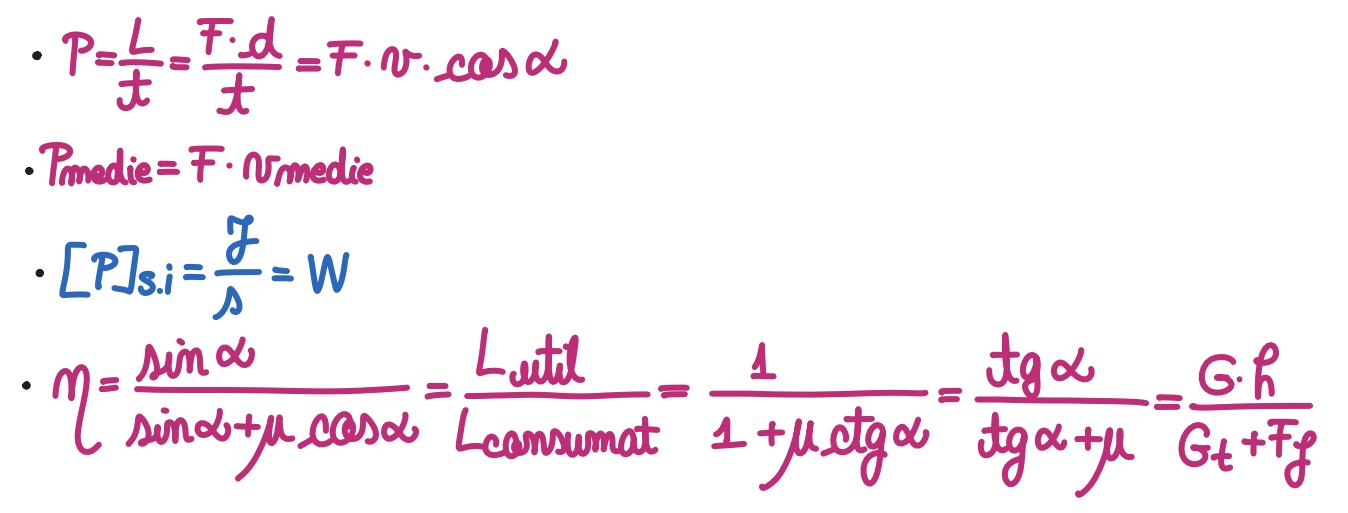 • P = L/t = F·d/t = F·v·cos α
• Pmedie = F·vmedie
• [P]s.i = J/s = W
• η = sin α/(sin α + μ cos α) = Lutil/Lconsumat = 1/(1 + μ ctg α) = tg α/(tg α + μ) = G·h/(Gt + Ff)